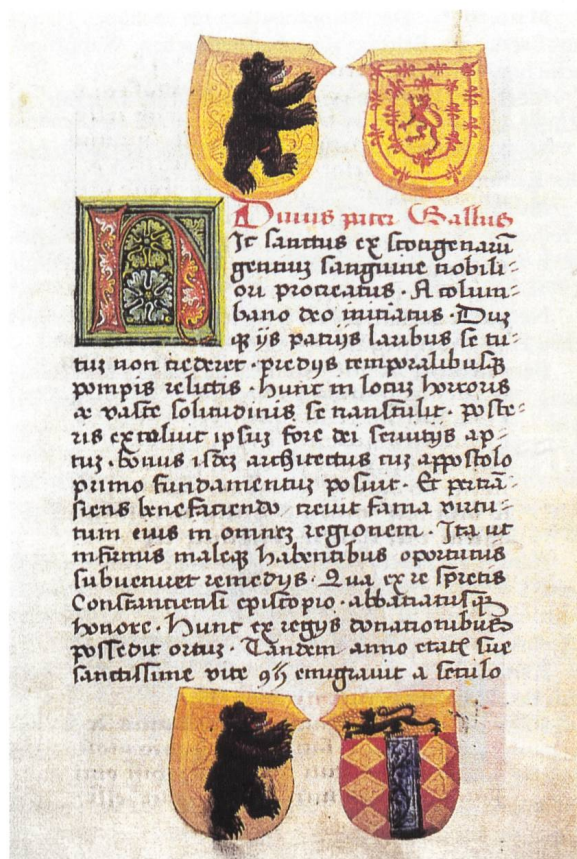 Diuus pater Gallus
Hic sanctus ex scotigenarū
gentiuʒ sanguine nobili⸗
ori procreatus · A colum⸗
bano deo initiatus · Duʒ
qʒ ijs patrijs laribus se tu⸗
tuʒ non crederet · predijs temporalibusqʒ
pompis relictis · hunc in locuʒ horroris
⁊ vaste solitudinis se transtulit · poste⸗
ris excoluit ipsuʒ fore dei seruitijs ap⸗
tuʒ · bonus isdeʒ architectus cuʒ appostolo
primo fundamentuʒ posuit · Et pertrā⸗
siens benefaciendo creuit fama virtu⸗
tum eius in omneʒ regionem · Ita ut
infirmis maleqʒ habentibus oportunis
subueniret remedijs · Qua ex re spretis
Constanciensi episcopio · abbaciatusqʒ
honore · Hunc ex regijs donationibus
possedit ortuʒ · Tandem anno etatis sue
sanctissime vite 95 emigrauit a seculo